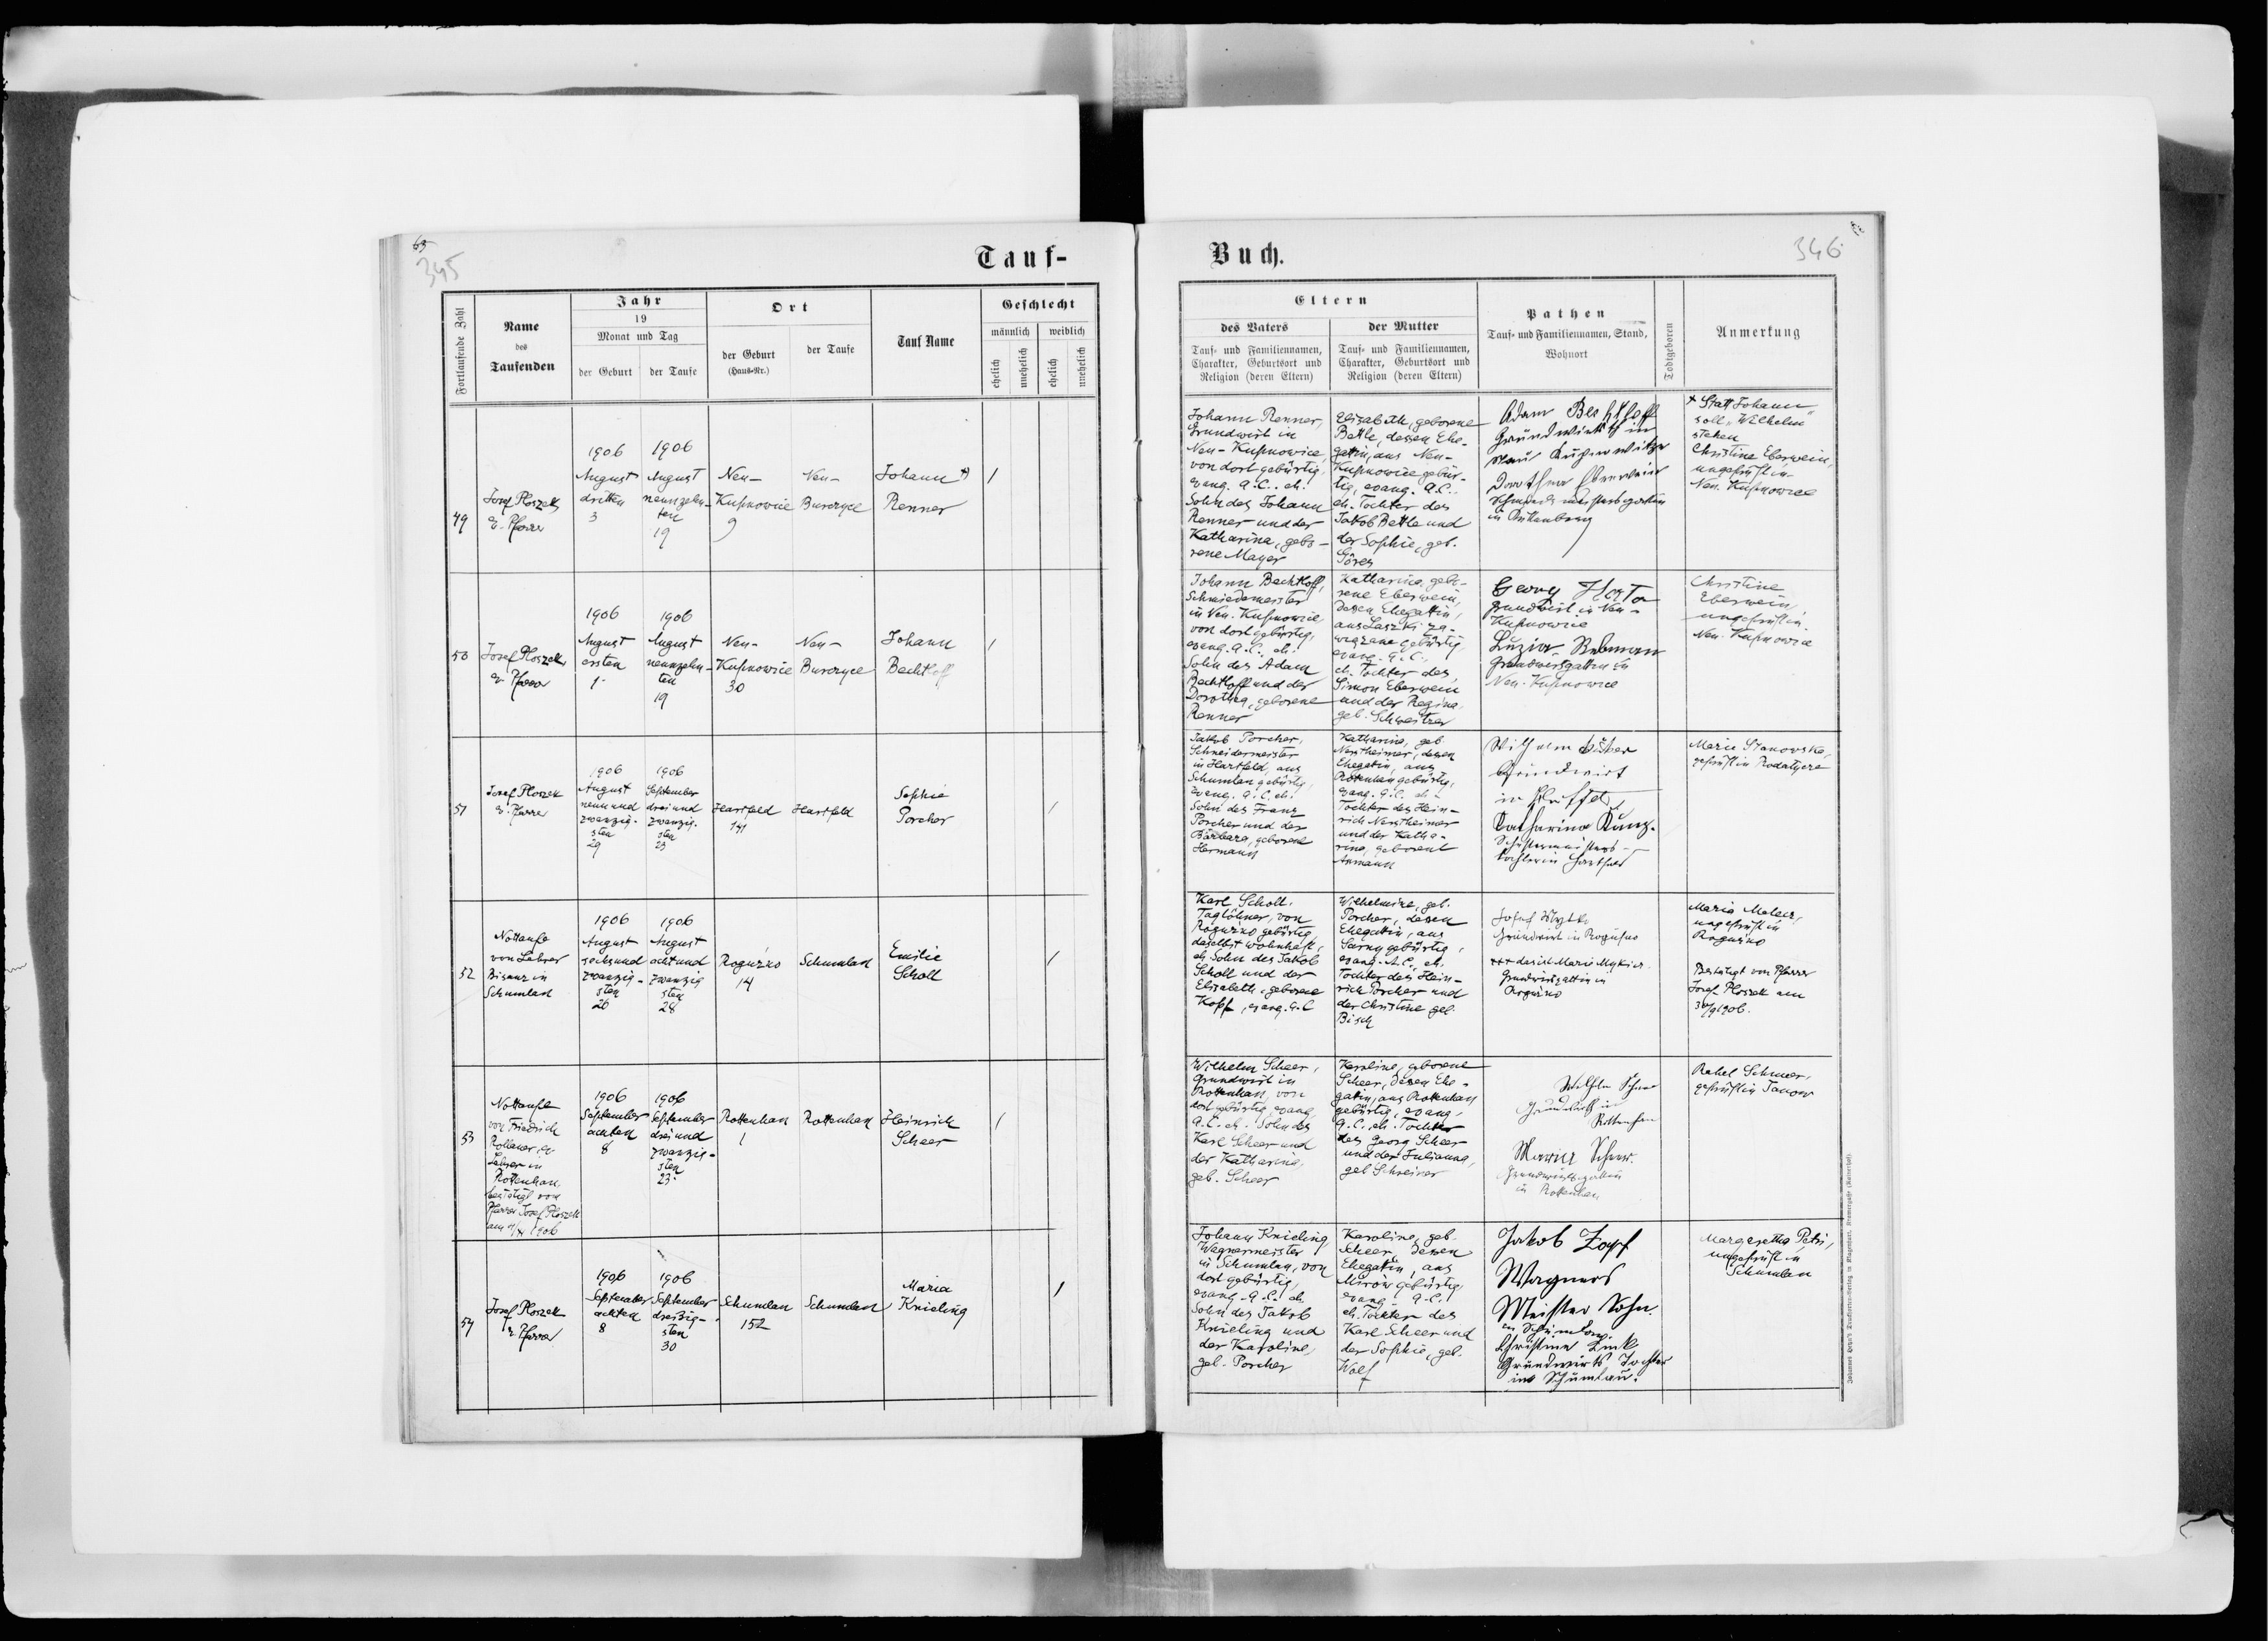 63
345
Tauf-
Fortlaufende Zahl
Name
des
Taufenden
Jahr
19
Monat und Tag
der Geburt
der Taufe
Ort
der Geburt
(Haus-Nr.)
der Taufe
Tauf Name
Geschlecht
männlich
weiblich
ehelich
unehelich
ehelich
unehelich
49
Josef Ploszek
ev. Pfarrer
1906
August
dritten
3
1906
August
neunzehn-
ten
19
Neu-
Kupnowice
9
Neu-
Burczyce
Johann +)
Renner
1
50
Josef Ploszek
ev. Pfarrer
1906
August
ersten
1.
1906
August
neunzehn-
ten
19
Neu-
Kupnowice
30
Neu-
Burczyce
Johann
Bechtloff
1
51
Josef Ploszek
ev. Pfarrer
1906
August
neunund
zwanzig-
sten
29
1906
September
drei und
zwanzig-
sten
23
Hartfeld
141
Hartfeld
Sophie
Porcher
1
52
Nottaufe
von Lehrer
Bisanz in
Schumlau
1906
August
sechsund
zwanzig-
sten
26
1906
August
achtund
zwanzig
sten
28
Roguzno
14
Schumlau
Emilie
Scholl
1
53
Nottaufe
von Friedrich
ev.
Lehrer in
Rottenhan
bestätigt von
Pfarrer Josef Ploszek
1906
1906
September
achten
8
1906
September
drei und
zwanzig-
sten
23.
Rottenhan
1
Rottenhan
Heinrich
Scheer
1
54
Josef Ploszek
ev. Pfarrer
1906
September
achten
8
1906
September
dreißig-
sten
30
Schumlau
152
Schumlau
Maria
Knieling
1
Buch.
346
Eltern
des Vaters
Tauf- und Familiennamen,
Charakter, Geburtsort und
Religion (deren Eltern)
der Mutter
Tauf- und Familiennamen,
Charakter, Geburtsort und
Religion (deren Eltern)
Pathen
Tauf- und Familiennamen, Stand,
Wohnort
Todtgeboren
Anmerkung
Johann Renner,
Grundwirt in
Neu-Kupnowice,
von dort gebürtig,
evang. A.C. eh.
Sohn des Johann
Renner und der
Katharina, gebo-
rene Mayer
Elisabeth, geborene
Bettle, dessen Ehe-
gattin, aus Neu-
Kupnowice gebür-
tig, evang. A.C.,
eh. Tochter des
Jakob Bettle und
der Sophie, geb.
Göres
Adam Bechtloff
Grundwirth in
Neu
Dorothea Eberwein
Schmiedmeistersgattin
in
+ Statt "Johann"
soll "Wilhelm"
stehen
Christine Eberwein,
ungeprüft in
Neu-Kupnowice
Johann Bechtloff,
Schmiedemeister
in Neu-Kupnowice
von dort gebürtig,
evang. A.C. eh.
Sohn des Adam
Bechtloff und der
Dorothea, geborene
Renner
Katharina, gebo-
rene Eberwein,
dessen Ehegattin,
aus Laszki za-
wiązane gebürtig
evang. A.C.,
eh. Tochter des
Simon Eberwein
und der Regina
geb. Schweitzer
Georg
Grundwirt in Neu-
Kupnowice
Luzia Rebman
Grundwirtsgattin in
Neu-Kupnowice
Christine
Eberwein,
ungeprüft in
Neu-Kupnowice
Jakob Porcher,
Schneidermeister
in Hartfeld, aus
Schumlau gebürtig,
evang. A.C. eh.
Sohn des Franz
Porcher und der
Barbara, geborene
Hermann
Katharina, geb.
dessen
Ehegattin, aus
Rottenhan gebürtig,
evang. A.C. eh.
Tochter des Hein-
rich
und der Katha-
rina, geborene
Armann
Wilhelm
Grundwirt
in
Katharina Kunz.
Schustermeisters-
tochter in Hartfeld
Marie Stanowska,
geprüft in Rodatycze
Karl Scholl.
Taglöhner, von
Roguzno gebürtig
daselbst wohnhaft,
eh. Sohn des Jakob
Scholl und der
Elisabeth, geborene
Kopf, evang. A.C
Wilhelmine, geb.
Porcher, dessen
Ehegattin, aus
Sarny gebürtig,
evang. A.C. eh.
Tochter des Hein-
rich Porcher und
der Christine geb.
Bisch
Josef
Grundwirt in Roguzno
+++ das ist Marie
Grundwirtsgattin in
Roguzno
Maria
ungeprüft in
Roguzno
Bestätigt von Pfarrer
Josef Ploszek am
30/9 1906.
Wilhelm Scheer,
Grundwirt in
Rottenhan, von
dort gebürtig, evang.
A.C. eh. Sohn des
Karl Scheer und
der Katharina,
geb. Scheer
Karoline, geborene
Scheer, dessen Ehe-
gattin, aus Rottenhan
gebürtig, evang.
A.C. eh. Tochter
des Georg Scheer
und der Julianna,
geb Schreiner
Grundwirth in
Rottenhan
Grundwirtsgattin
in Rottenhan
Rahel Schmer,
geprüft in Janow
Johann Knieling,
Wagnermeister
in Schumlau, von
dort gebürtig,
evang. A.C. eh.
Sohn des Jakob
Knieling und
der Karoline,
geb. Porcher
Karoline, geb.
Scheer, dessen
Ehegattin, aus
Mirów gebürtig
evang. A.C.
eh. Tochter des
Karl Scheer und
der Sophie, geb.
Wolf
Jakob Zopf
Wagners
Meister Sohn
in Schumlau.
Christina Link
Grundwirts Tochter
in Schumlau.
Margaretha Petri,
ungeprüft in
Schumlau